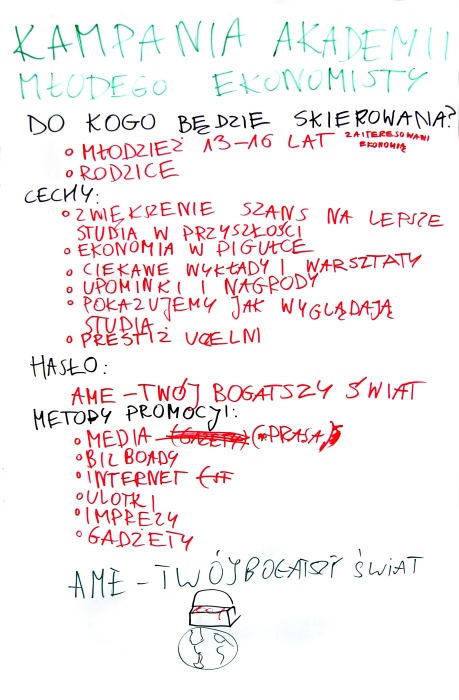 KAMPANIA AKADEMII
MŁODEGO EKONOMISTY
DO KOGO BĘDZIE SKIEROWANA?
• MŁODZIEŻ 13-16 LAT ZAITERESOWANI EKONOMIĄ
• RODZICE
CECHY:
• ZWIĘKSZENIE SZANS NA LEPSZE
STUDIA W PRZYSZŁOŚCI
• EKONOMIA W PIGUŁCE
• CIEKAWE WYKŁADY I WARSZTATY
• UPOMINKI I NAGRODY
• POKAZUJEMY JAK WYGLĄDAJĄ
STUDIA
• PRESTIŻ UCELNI
HASŁO:
AME - TWÓJ BOGATSZY ŚWIAT
METODY PROMOCJI:
• MEDIA (PRASA)
• BILBOADY
• INTERNET
• ULOTKI
• IMPREZY
• GADŻETY
AME - TWÓJ BOGATSZY ŚWIAT